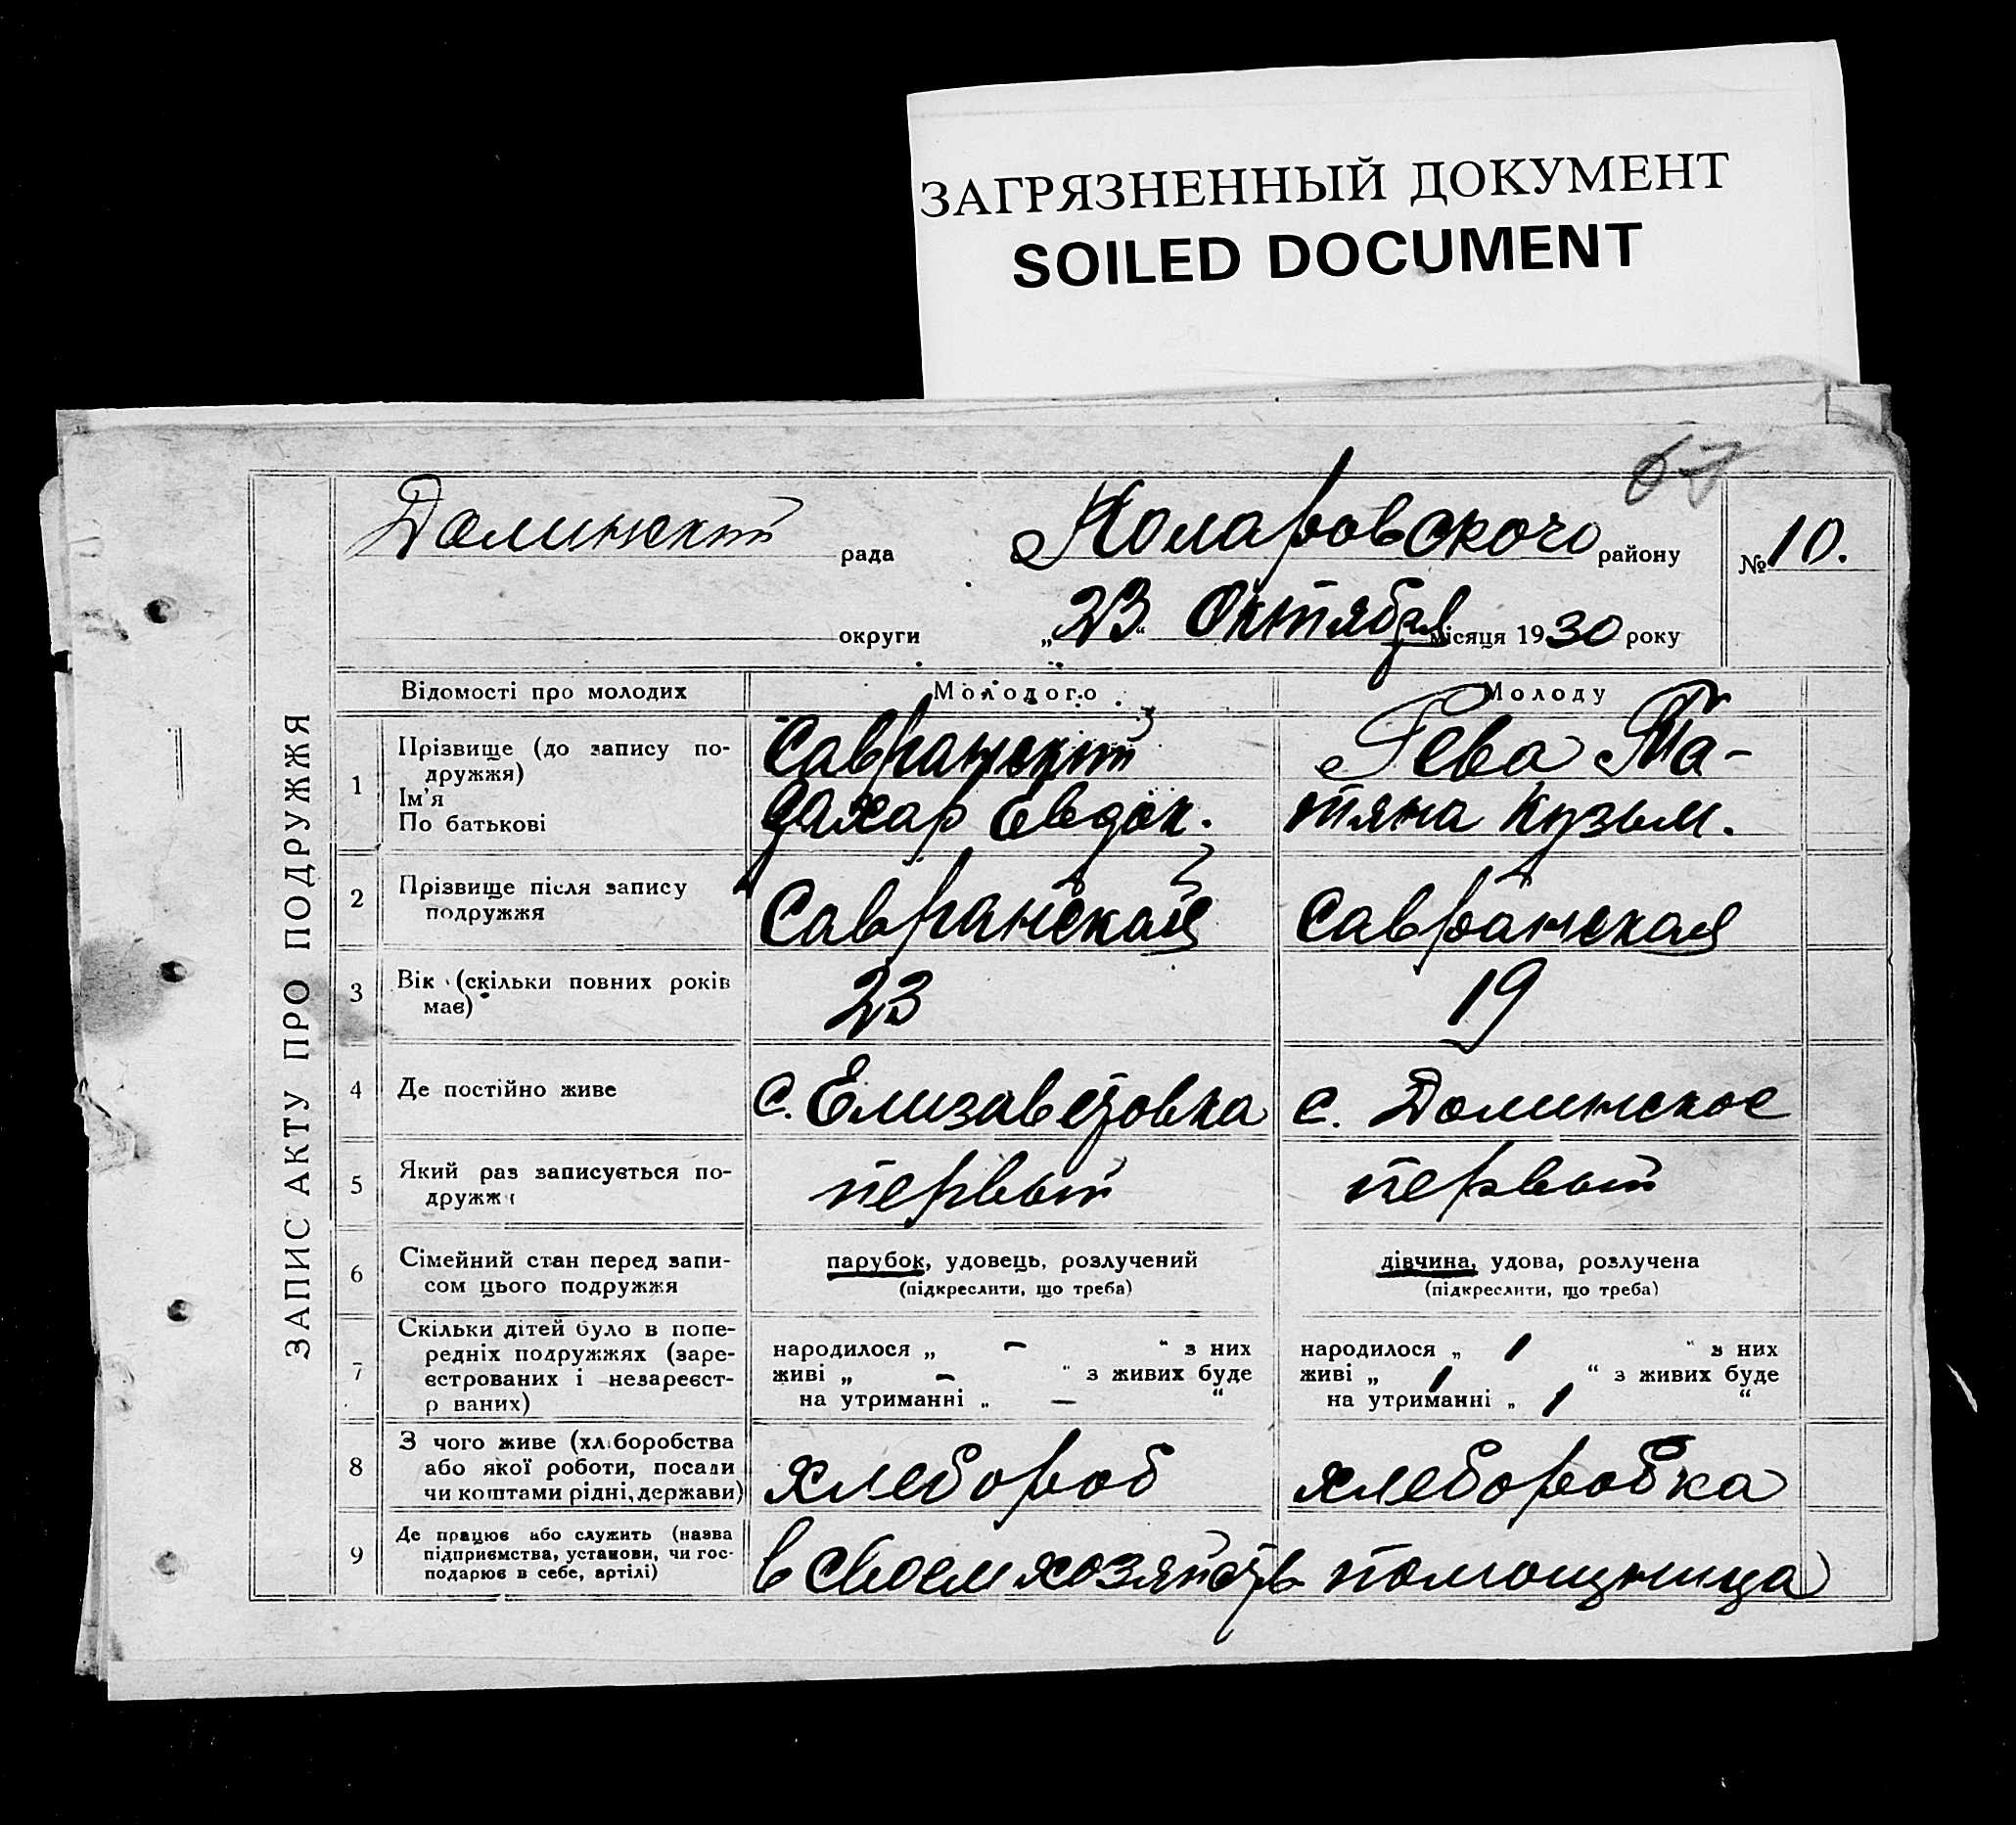 ЗАГРЯЗНЕННЫЙ ДОКУМЕНТ
SOILED DOCUMENT
67
ЗАПИС АКТУ ПРО ПОДРУЖЖЯ
Долинский рада Коларовского району № 10.
округи „23“ Октября місяця 1930 року
Відомості про молодих Молодого Молоду
1 Прізвище (до запису по-
дружжя)
Ім'я
По батькові
Савранский
Захар Евдок.
Рева Та-
тяна Кузьм.
2 Прізвище після запису
подружжя
Савранский
Савранская
3 Вік (скільки повних років
має)
23
19
4 Де постійно живе
с. Елизаветовка
с. Долинское
5 Який раз записується по-
дружжя
первый
первый
6 Сімейний стан перед запи-
сом цього подружжя
парубок, удовець, розлучений
(підкреслити, що треба)
дівчина, удова, розлучена
(підкреслити, що треба)
7 Скільки дітей було в попе-
редніх подружжях (заре-
єстрованих і незареєст-
р ваних)
народилося „ – “ з них
живі „ – “ з живих буде
на утриманні „ – “
народилося „ 1 “ з них
живі „ 1 “ з живих буде
на утриманні „ 1 “
8 З чого живе (хліборобства
або якої роботи, посади
чи коштами рідні, держави)
хлебороб
хлеборобка
9 Де працює або служить (назва
підприємства, установи, чи гос-
подарює в себе, артілі)
в своем хозяйств
помощница